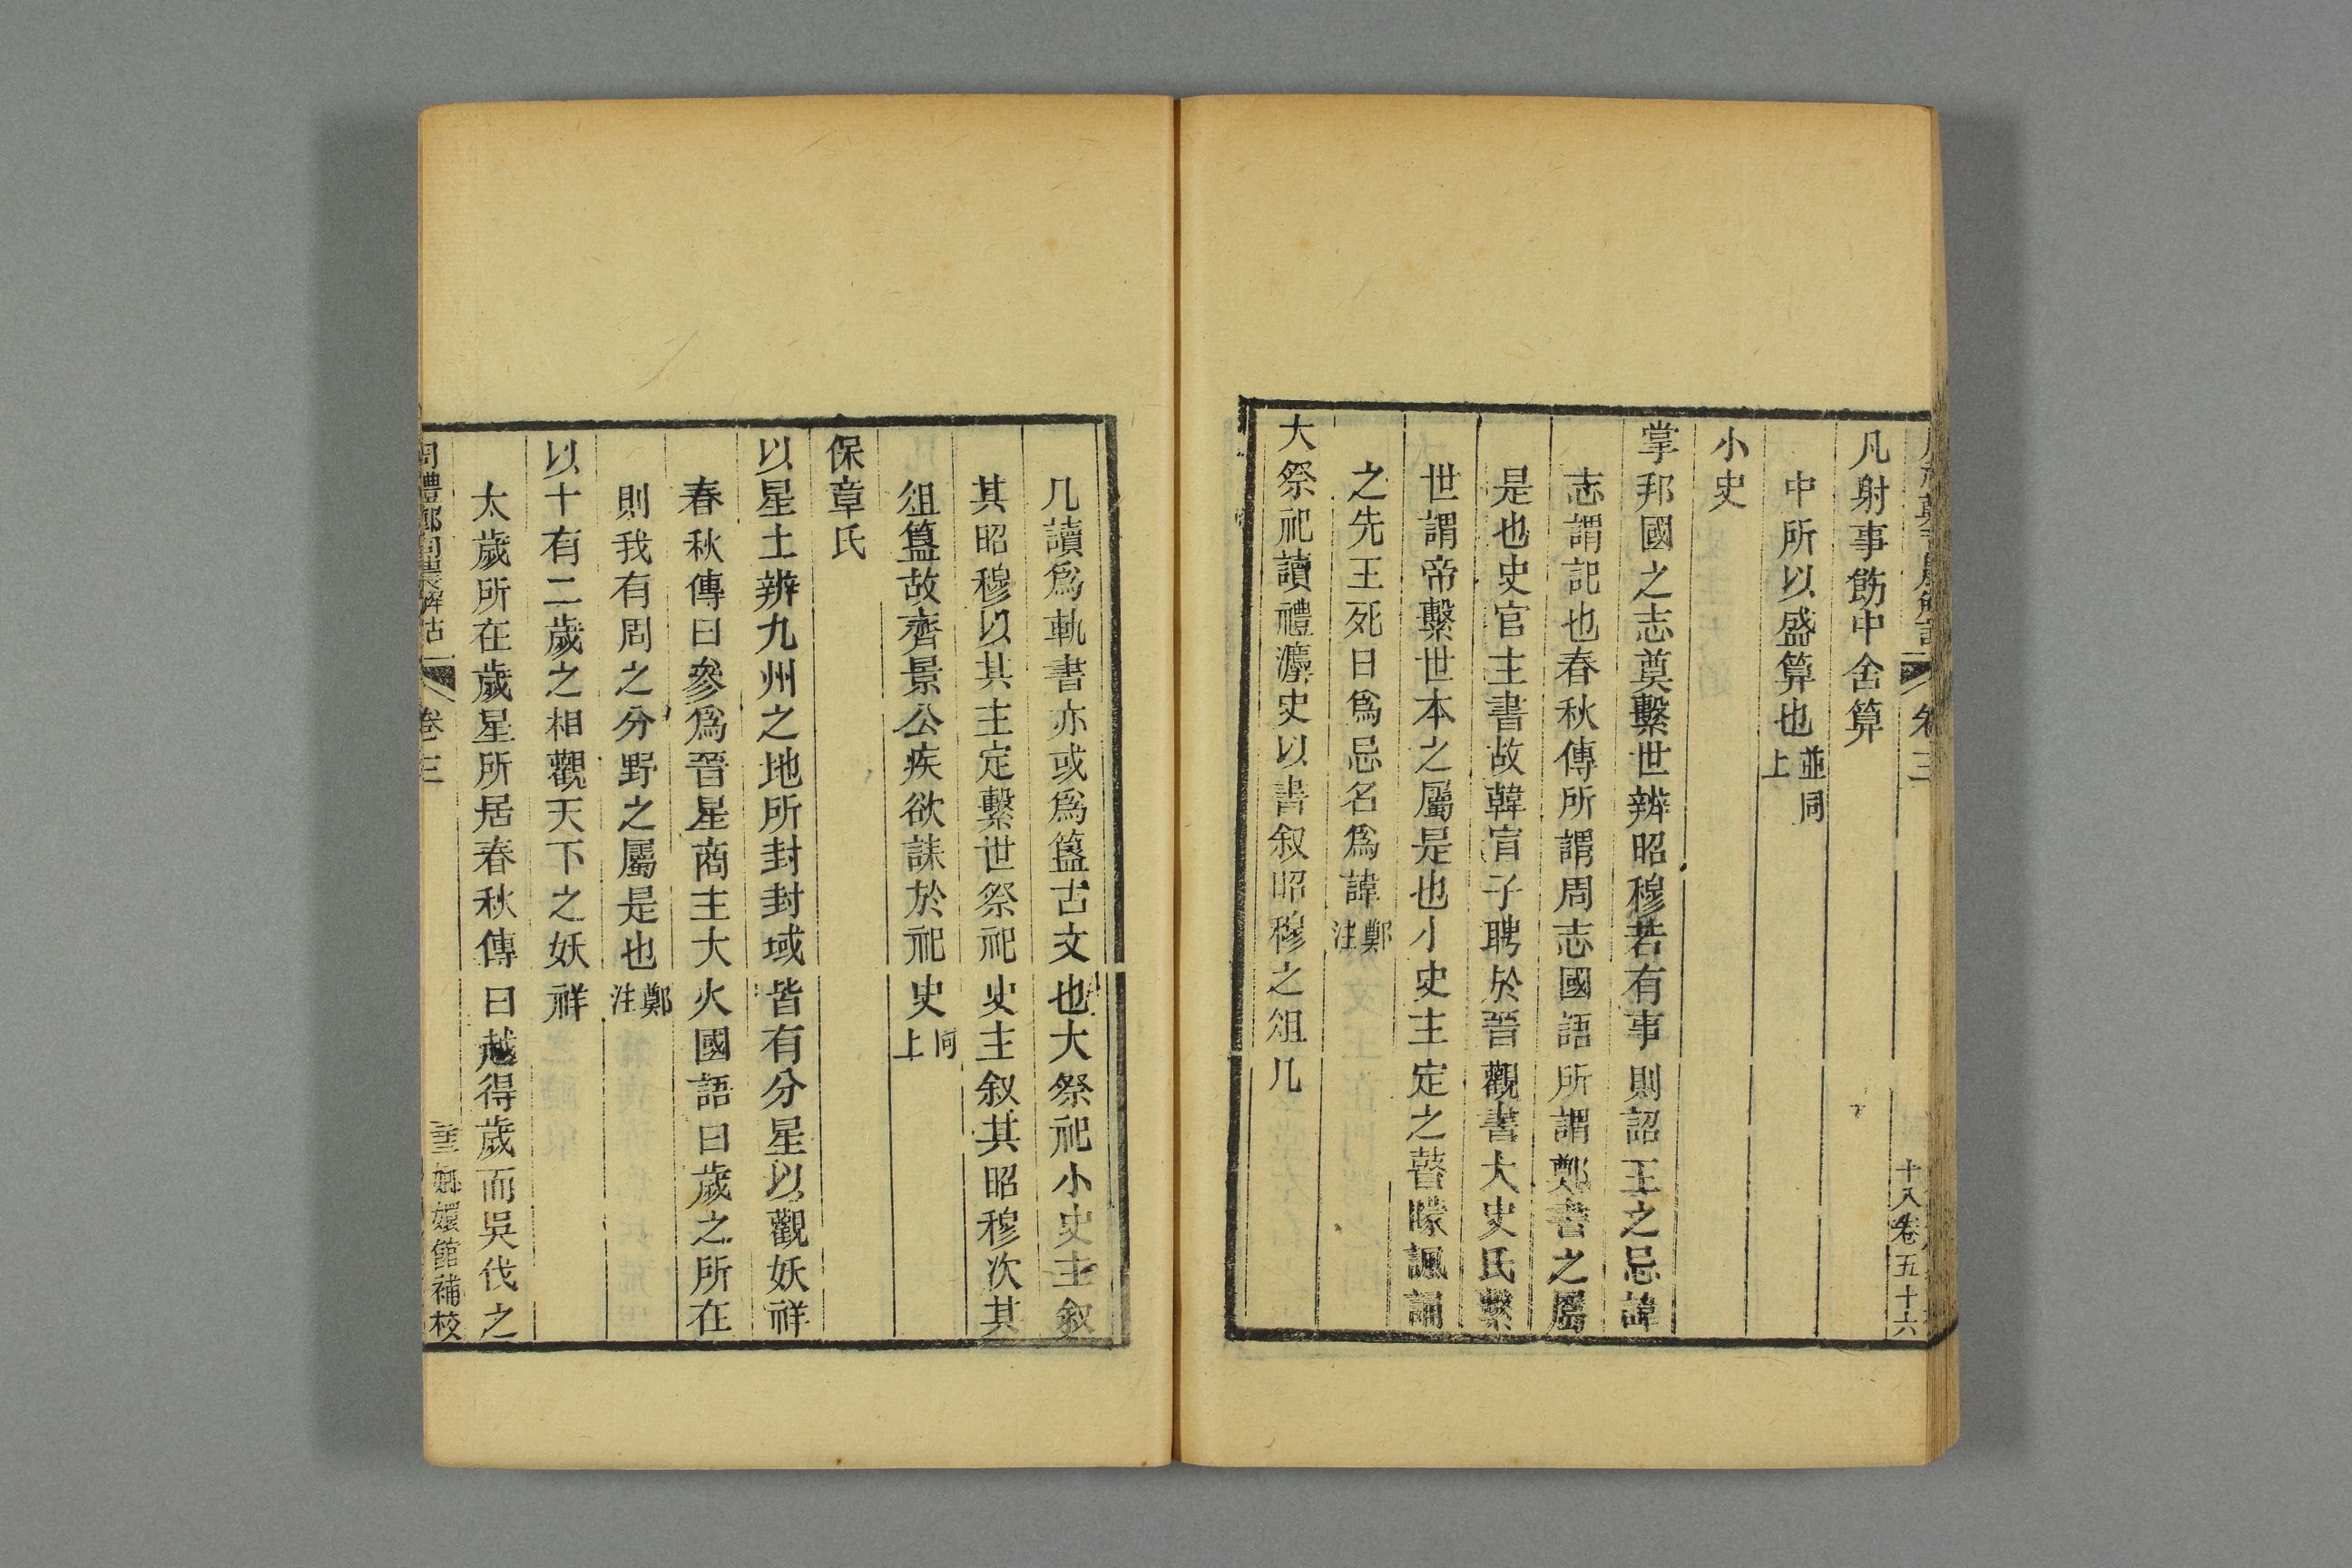 卷三
十八卷五十六
凡射事飭中舍算
中所以盛算也並同上
小史
掌邦國之志奠繫世辨昭穆若有事則詔王之忌諱
志謂記也春秋傳所謂周志國語所謂鄭書之屬
是也史官主書故韓宣子聘於晉觀書大史氏繫
世謂帝繫世本之屬是也小史主定之瞽矇諷誦
之先王死日爲忌名爲諱鄭注
大祭祀讀禮灋史以書叙昭穆之俎几
几讀爲軌書亦或爲簋古文也大祭祀小史主叙
其昭穆以其主定繫世祭祀史主叙其昭穆次其
俎簋故齊景公疾欲誅於祀史同上
保章氏
以星土辨九州之地所封封域皆有分星以觀妖祥
春秋傳曰參爲晉星商主大火國語曰歲之所在
則我有周之分野之屬是也鄭注
以十有二歲之相觀天下之妖祥
太歲所在歲星所居春秋傳曰越得歲而吳伐之
卷三
嫏嬛館補校